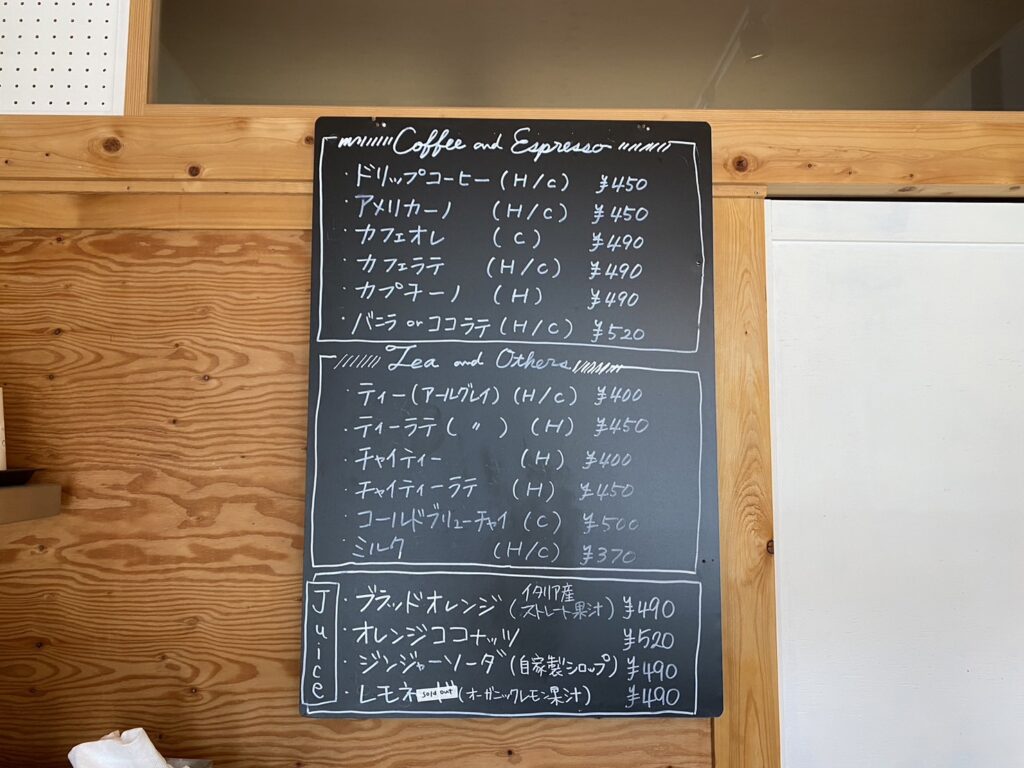 Coffee and Espresso
・ドリップコーヒー(H/C) ¥450
・アメリカーノ (H/C) ¥450
・カフェオレ (C) ¥490
・カフェラテ (H/C) ¥490
・カプチーノ (H) ¥490
・バニラ or ココラテ(H/C) ¥520
Tea and Others
・ティー(アールグレイ)(H/C) ¥400
・ティーラテ( 〃 ) (H) ¥450
・チャイティー (H) ¥400
・チャイティーラテ (H) ¥450
・コールドブリューチャイ (C) ¥500
・ミルク (H/C) ¥370
Juice
・ブラッドオレンジ(イタリア産ストレート果汁) ¥490
・オレンジココナッツ ¥520
・ジンジャーソーダ(自家製シロップ) ¥490
・レモネ sold out (オーガニックレモン果汁) ¥490